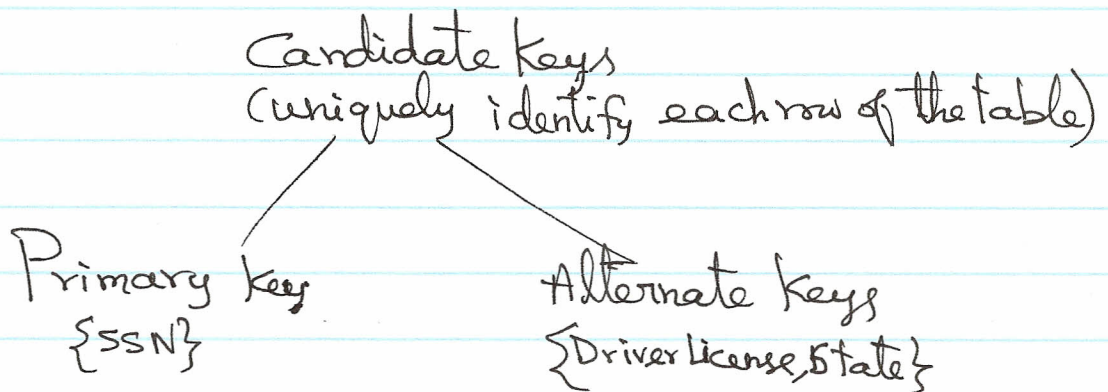 Candidate Keys
(uniquely identify each row of the table)
Primary Key
{SSN}
Alternate Keys
{Driver License, State}